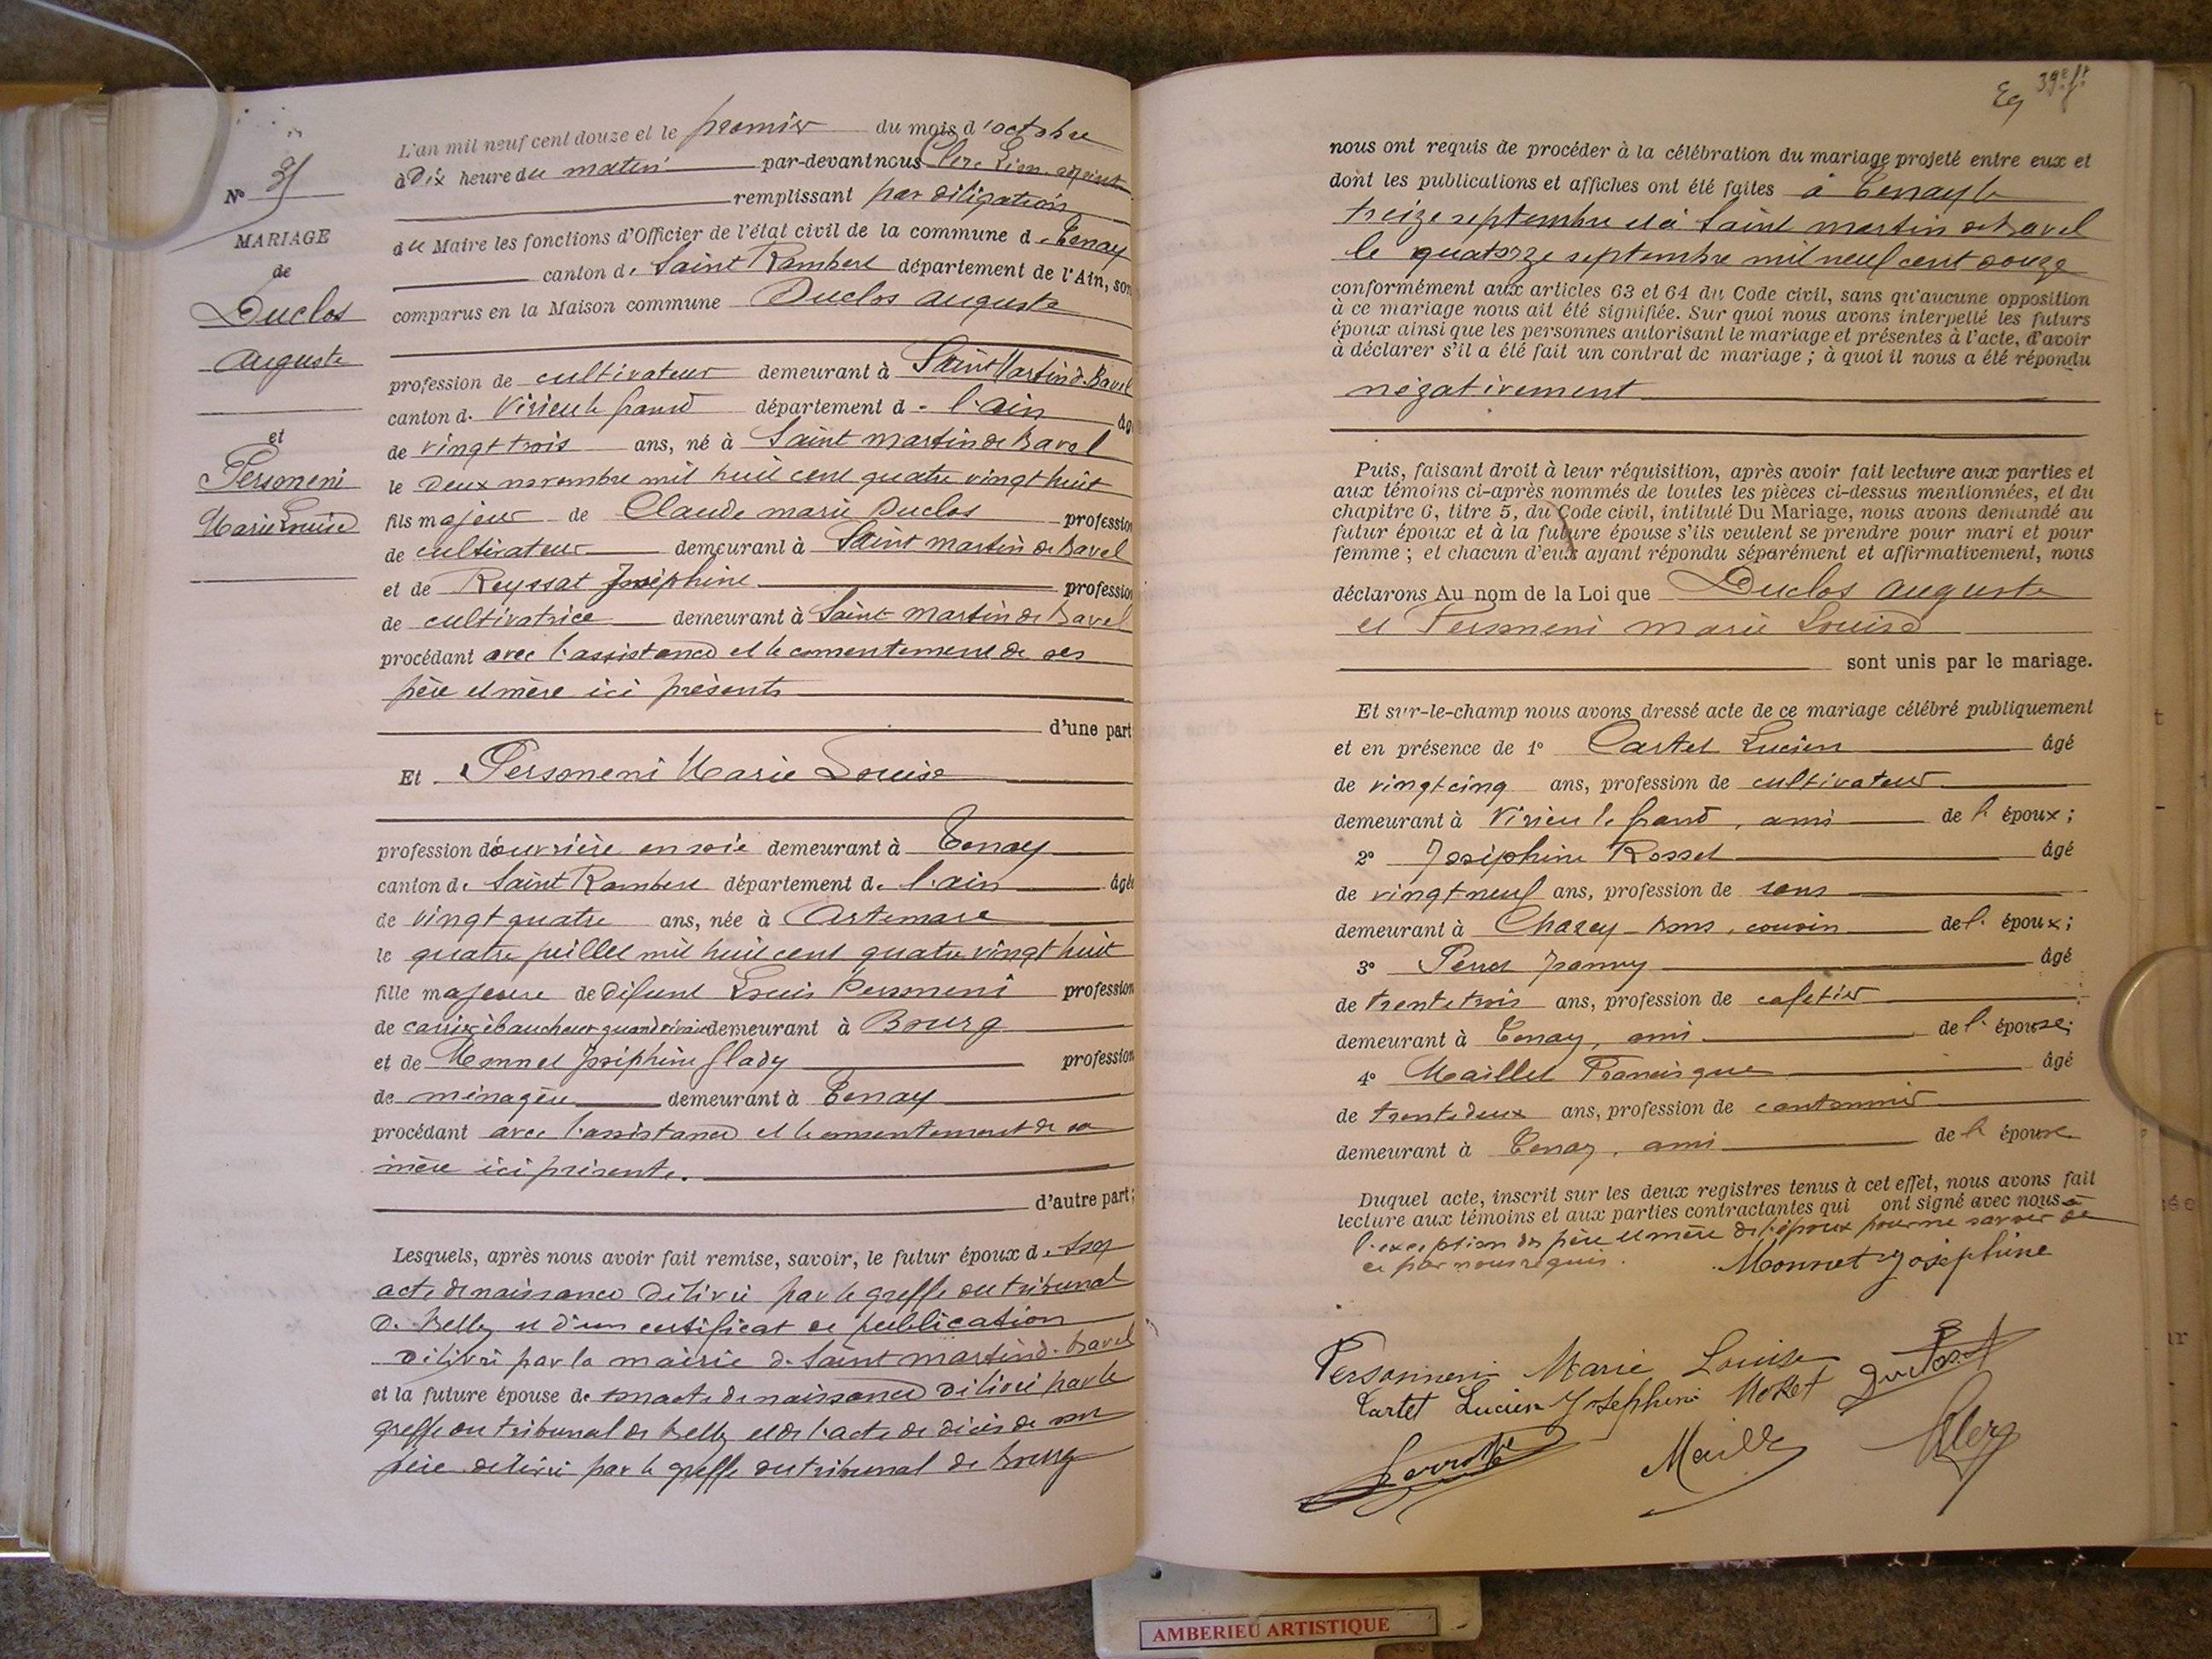 39e ft
L'an mil neuf cent douze et le premier du mois d'octobre
à Dix heure du matin par-devant nous Clerc Léon adjoint
remplissant par déligation
du Maire les fonctions d'Officier de l'état civil de la commune de Tenay
canton de Saint Rambert département de l'Ain, son
comparus en la Maison commune Duclos auguste
profession de cultivateur demeurant à Saint Martin d. Bavel
canton d. Virieu le grand département d. l'ain âg
de vingt trois ans, né à Saint martin de Bavel
le deux novembre mil huit cent quatre vingt huit
fils majeur de Claude marie Duclos profession
de cultivateur demeurant à Saint martin de Bavel
et de Reyssat Joséphine profession
de cultivatrice demeurant à Saint martin de Bavel
procédant avec l'assistance et le consentement de ses
père et mère ici présents
d'une part
Et Personeni Marie Louise
profession d'ouvrière en soie demeurant à Tenay
canton de Saint Rambert département de l'ain âgée
de vingt quatre ans, née à Artemare
le quatre juillet mil huit cent quatre vingt huit
fille majeure de défunt Louis Personeni profession
de carrier ébaucheur quand vivait demeurant à Bourg
et de Monnet Joséphine Glady profession
de ménagère demeurant à Tenay
procédant avec l'assistance et le consentement de sa
mère ici présente.
d'autre part;
Lesquels, après nous avoir fait remise, savoir, le futur époux de son
acte de naissance délivré par le greffe du tribunal
d. Belley et d'un certificat de publication
délivré par la mairie d. Saint martin d. Bavel
et la future épouse de son acte de naissance délivré par le
greffe du tribunal de Belley et de l'acte de décès de son
père délivré par le greffe du tribunal de Bourg
N°
MARIAGE
de
Duclos
auguste
et
Personeni
Marie Louise
nous ont requis de procéder à la célébration du mariage projeté entre eux et
dont les publications et affiches ont été faites à Tenay le
treize septembre et à Saint martin de Bavel
le quatorze septembre mil neuf cent douze
conformément aux articles 63 et 64 du Code civil, sans qu'aucune opposition
à ce mariage nous ait été signifiée. Sur quoi nous avons interpellé les futurs
époux ainsi que les personnes autorisant le mariage et présentes à l'acte, d'avoir
à déclarer s'il a été fait un contrat de mariage ; à quoi il nous a été répondu
négativement
Puis, faisant droit à leur réquisition, après avoir fait lecture aux parties et
aux témoins ci-après nommés de toutes les pièces ci-dessus mentionnées, et du
chapitre 6, titre 5, du Code civil, intitulé Du Mariage, nous avons demandé au
futur époux et à la future épouse s'ils veulent se prendre pour mari et pour
femme ; et chacun d'eux ayant répondu séparément et affirmativement, nous
déclarons Au nom de la Loi que Duclos auguste
et Personeni marie Louise
sont unis par le mariage.
Et sur-le-champ nous avons dressé acte de ce mariage célébré publiquement
et en présence de 1° Cartet Lucien âgé
de vingt cinq ans, profession de cultivateur
demeurant à Virieu le grand, ami de l' époux ;
2° Joséphine Rosset âgé
de vingt neuf ans, profession de sans
demeurant à Chazey-Bons, cousin de l' époux ;
3° Perret Joanny âgé
de trente trois ans, profession de cafetier
demeurant à Tenay, ami de l' épouse ;
4° Maillet Francisque âgé
de trente deux ans, profession de cantonnier
demeurant à Tenay, ami de l' épouse
Duquel acte, inscrit sur les deux registres tenus à cet effet, nous avons fait
lecture aux témoins et aux parties contractantes qui ont signé avec nous à
l'exception des père et mère de l'époux pour ne savoir de
ce par nous requis.
Monnet Joséphine
Personneni Marie Louise Duclos A
Cartet Lucien Joséphine
Maillet Clerc
AMBERIEU ARTISTIQUE